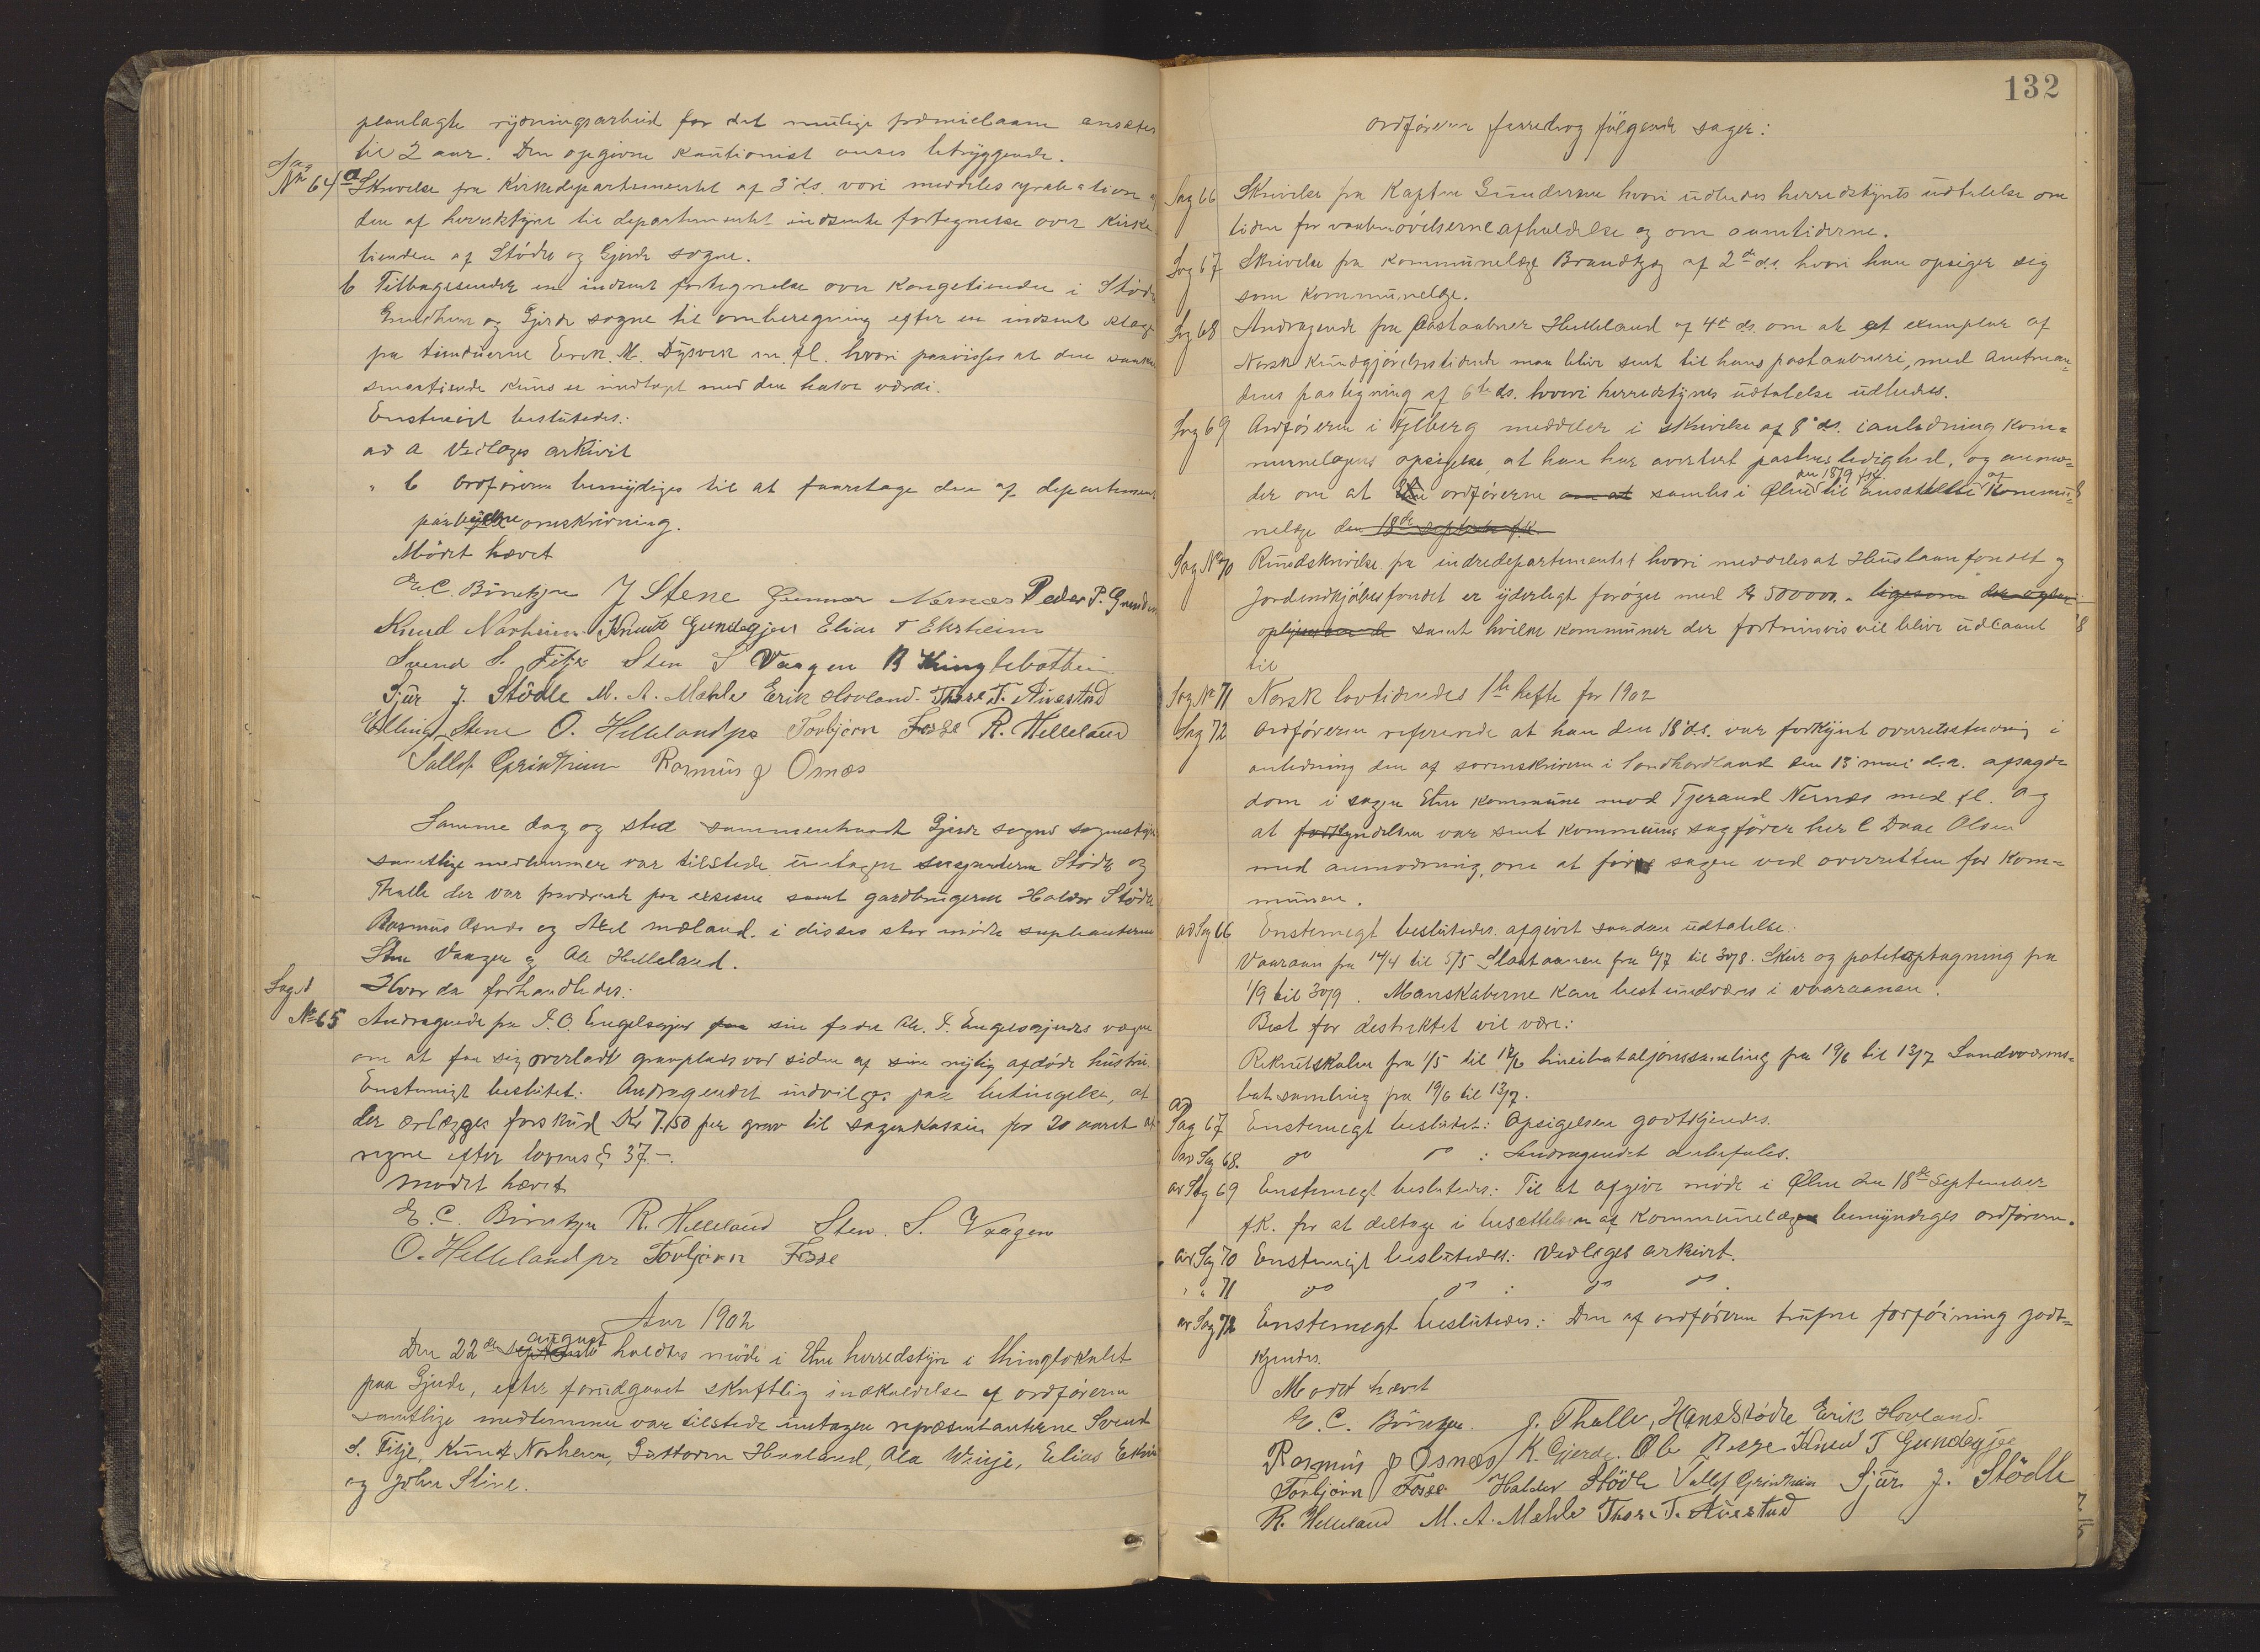 planlagte rydningsarbeid for det mulige præmielaan ansættes
til 2 aar. Den opgivne kautionist anses betryggende.
Sag
No 64 a Skrivelse fra Kirkedepartementet af 3' ds. vori meddeles aprobation af
den af herredstyre til departementet indsente fortegnelse over kirke
tienden af Stödle og Gjerde sogne.
b Tilbagesender en indsent fortegnelse over Kongetienden i Stödle
Grindheim og Gjerde sogne til omberegning efter en indsent klage
fra tiendüerne Erik M. Dysvik m. fl. hvori paavisses at den
smørtiende kuns er indtagt med den halve værdi.
Enstemigt beslutedes:
ad a Vedlages arkivet
" b Ordføreren bemyndiges til at foaretage den af departementet
omskrivning.
Mödet hævet
E. C. Börretzen J Stene Gunnar Nernæs Peder P. Grindheim
Knud Norheim Knut Gundegjer Elias T Ekrheim
Svend S. Fitje Sten S Vaagen B Thinglebotten
Sjur J. Stödle M. A. Mæhle Erik Hovland Thore T. Auestad
Elling Stene O. Hellelandpr Torbjørn Fosse R. Helleland
Tallef Grindheim Rasmus J Osnæs
Samme dag og sted sammenkaadt Gjerde sogns sognestyre
samtlige medlemmer var tilstede untagen Stödle og
Thalle der var fraværende samt gardbrugerne Haldor Stödle
Rasmus Osnæs og Axel mæland. i disses sted mødte supleanterne
Sten Vaagen og Ole Helleland.
Sag
Hvor da forhandledes:
No 65 Andragende fra P. O. Engelsgjer sin fader Ole P. Engelsgjerdes vegne
om at faa sig overladt gravplads ved siden af sin nylig afdöde hustru
Enstemigt beslutet: Andragendet indvilges paa betingelse, at
der erlægges forskud Kr 7.50 per grav til sognekassen for 20 aaret at
regne efter lovens § 37.-.
mödet hævet
E. C. Börretzen R. Helleland Sten S. Vaagen
O. Hellelandpr Torbjørn Fosse
Aar 1902
august
Den 22de holdtes möde i Etne herredstyre i thinglokalet
paa Gjerde, efter forudgaaet skriftlig indkaldelse af ordføreren
samtlige medlemmer var tilstede untagen repræsentanterne Svend
S. Fitje, Knut Norheim, Guttorm Hovland, Ola Weije, Elias Ekrheim
og John Stene.
132
ordføreren ferredrog fölgende sager:
Sag 66 Skrivelse fra Kaptein Gundersen hvori udbedes herredstyrets udtalelse om
tiden for vaabenövelserne afholdelse og om aanntiderne.
Sag 67 Skrivelse fra kommunelæge Brandtzæg af 2de ds. hvori han opsiger sig
som kommunelæge.
Sag 68 Andragende fra Postaabner Helleland af 4de ds. om at et exemplar af
Norsk Kundgjörelsestidende maa blive sent til hans postaabneri, med Amtman-
dens pategning af 6te ds. hvori herredstyres udtalelse udbedes.
Sag 69 Ordføreren i Fjelberg meddeler i skrivelse af 8' ds. i anledning kom-
munelægens opsigelse, at han har avertert postens ledighed, og anmo-
den 18/9 fk. af
der om at ordförerne om at samles i Ølen til ansættelse Kommu-
nelæge den 18de september f.k.
Sag No 70 Rundskrivelse fra indredepartementet hvori meddeles at Huslaanfondet og
Jordindkjöbesfondet er yderlegt forøget med Kr 500000.- ligesom
samt hvilke kommuner der fortrinsvis vil blive udlaant
til
Sag No 71 Norsk lovtidendes 1te hefte for 1902
Sag 72 Ordføreren refererede at han den 18' ds. var forkynt overretsstevning i
anledning den af sorenskriveren i Søndhordland den 13 mai d.a. afsagde
dom i sagen Etne kommune mod Tjerand Nernæs med fl. og
at forkyndelsen var sent kommunens sagfører her C Daae Olsen
med anmodning, om at føre sagen ved overretten for Kom-
munen.
ad Sag 66 Enstemegt beslutedes afgivet saadan udtalelse:
Vaaraan fra 14/4 til 5/5 Slaataanen fra 6/7 til 30/8. Skur og potetoptagning fra
1/9 til 30/9. Manskaberne kan best undværes i vaaraanen.
Best for destriktet vil være:
Rekrutskolen fra 1/5 til 18/6 linieibataljonssamling fra 19/6 til 13/7 Landværns-
bat. samling fra 19/6 til 13/7.
ad
Sag 67 Enstemegt beslutet: Opsigelsen godtkjendes.
ad Sag 68. do do : Andragendet anbefales.
ad Sag 69 Enstemegt beslutedes: Til at afgive møde i Ølen den 18de September
fk. for at deltage i besættelsen af Kommunelægen bemyndiges ordføreren.
ad Sag 70 Enstemigt beslutedes: Vedlages arkivet.
" " 71 do do : do do.
ad Sag 72 Enstemegt beslutedes: Den af ordføreren trufne forføining godt-
kjendes.
Mödet hævet
E. C. Börretzen. J. Thalle, Hans Stödle Erik Hovland.
Rasmus J Osnæs K. Gjerde. Ole Berge Knud T Gundegjer
Torbjørn Fosse Haldor Stödle Tallef Grindheim Sjur J. Stödle
R. Helleland M. A. Mæhle Thore T. Auestad